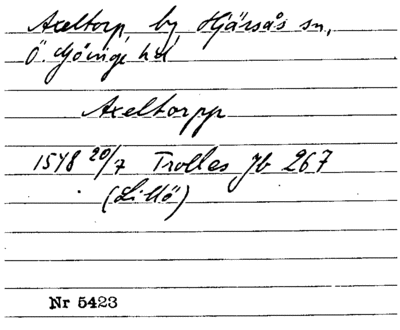 Axeltorp, by, Hjärsås sn,
Ö. Göinge hd
Axeltorpp
1548 20/7 Trolles Jb 267
(Lillö)
Nr 5423